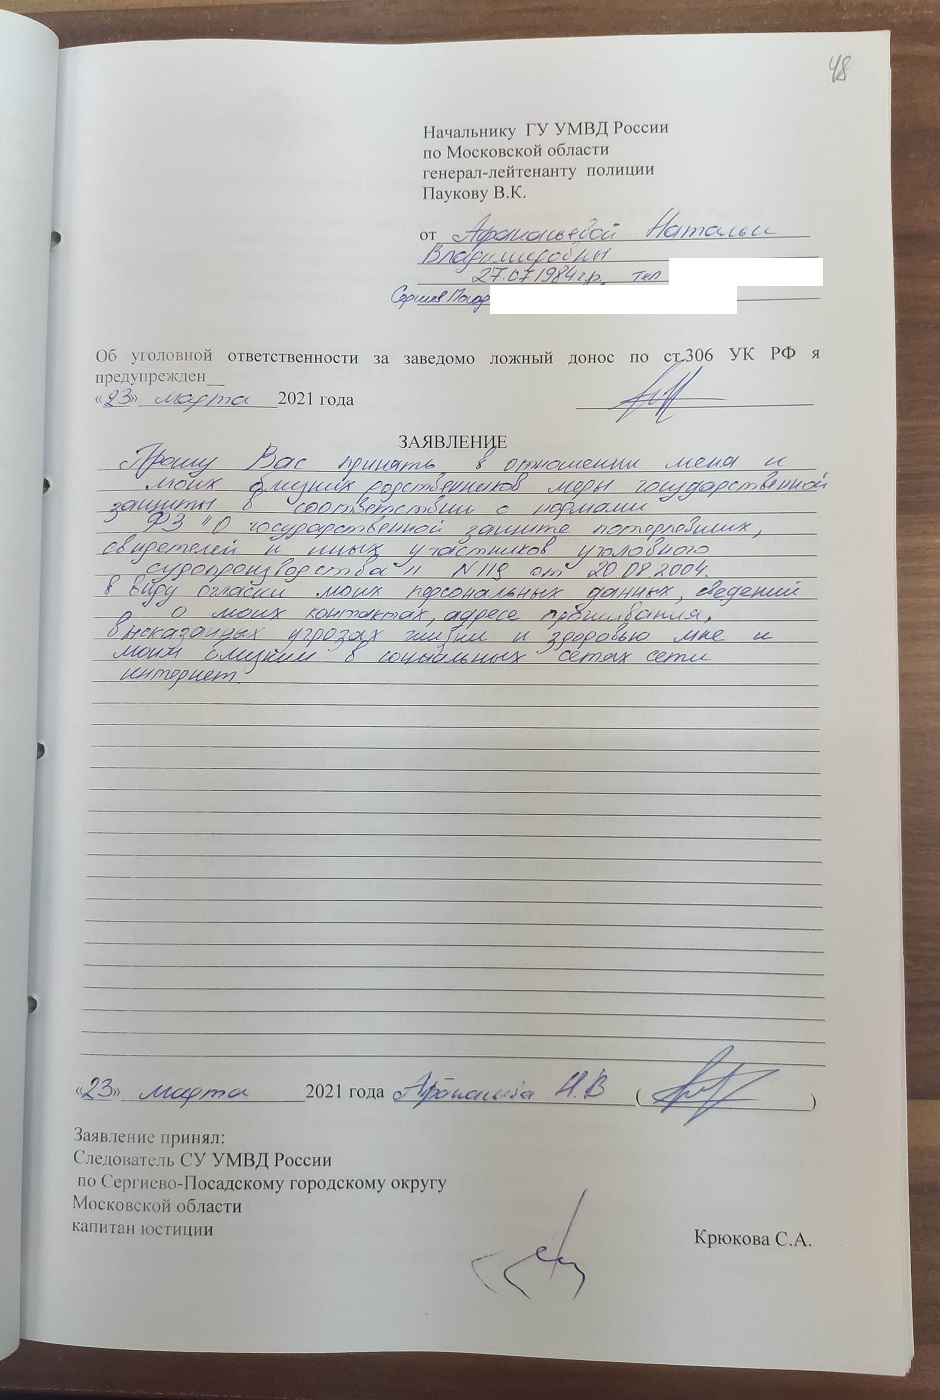 48
Начальнику ГУ УМВД России
по Московской области
генерал-лейтенанту полиции
Паукову В.К.
от Афанасьевой Натальи
Владимировны
27.07.1984г.р. тел
Сергиев Посад
Об уголовной ответственности за заведомо ложный донос по ст.306 УК РФ я
предупрежден__
«23» марта 2021 года
ЗАЯВЛЕНИЕ
Прошу Вас принять в отношении меня и
моих близких родственников меры государственной
защиты в соответствии с нормами
ФЗ "О государственной защите потерпевших,
свидетелей и иных участников уголовного
судопроизводства" N 119 от 20.08.2004.
в виду огласки моих персональных данных, сведений
о моих контактах, адресе проживания,
высказанных угрозах жизни и здоровью мне и
моим близким в социальных сетях сети
интернет.
«23» марта 2021 года Афанасьева Н.В ( )
Заявление принял:
Следователь СУ УМВД России
по Сергиево-Посадскому городскому округу
Московской области
капитан юстиции
Крюкова С.А.